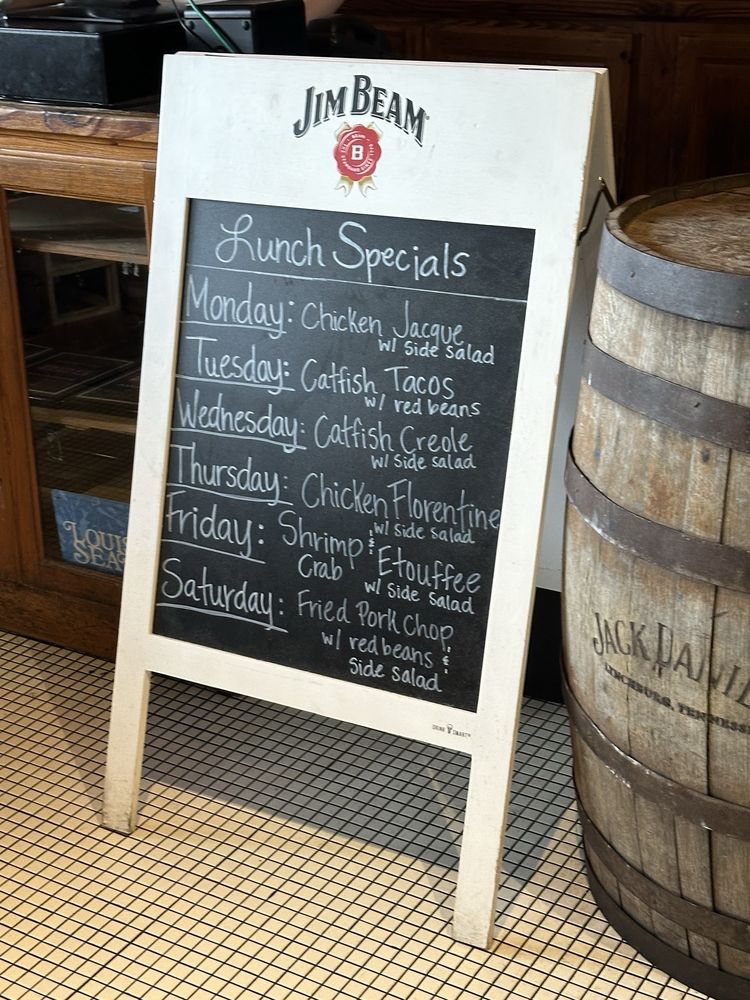 JIM BEAM
B
Lunch Specials
Monday: Chicken Jacque
w/ side salad
Tuesday: Catfish Tacos
w/ red beans
Wednesday: Catfish Creole
w/ side salad
Thursday: Chicken Florentine
w/ side salad
Friday: Shrimp & Crab Etouffee
w/ side salad
Saturday: Fried Pork Chop,
w/ red beans &
side salad
DRINK SMART
JACK DANI
LYNCHBURG, TENNESS
LOUIS
SEA